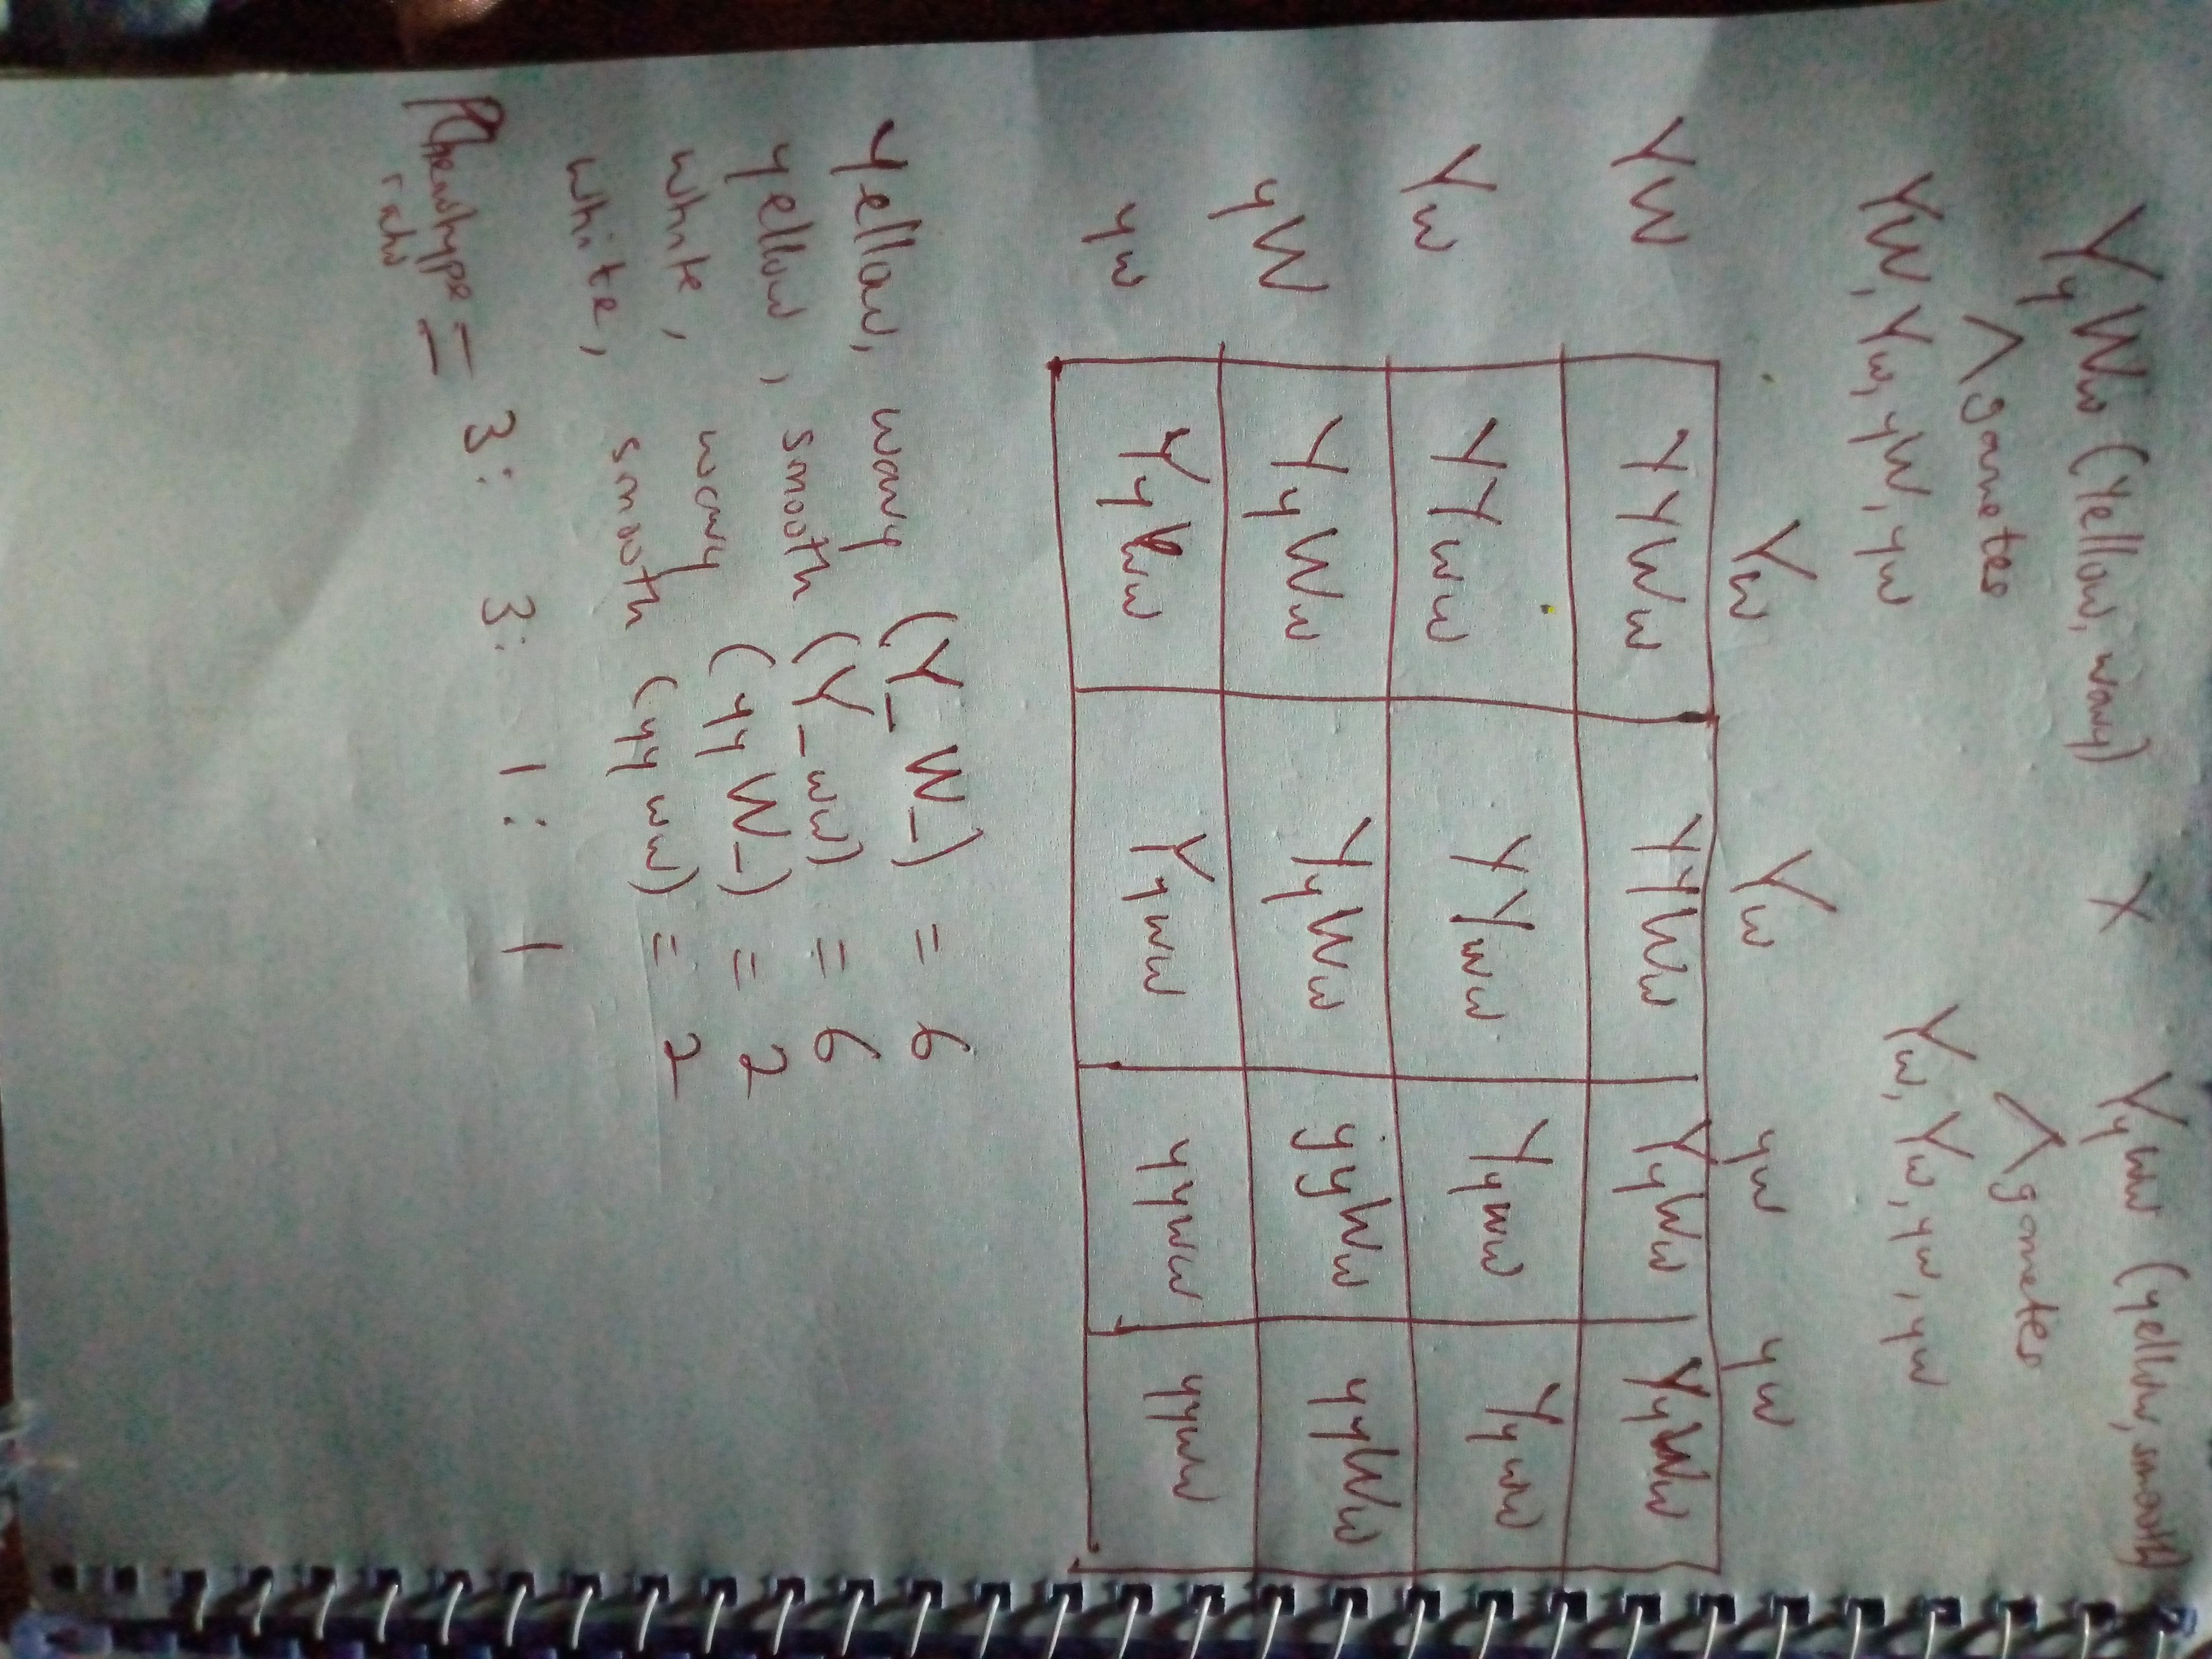 YyWw (Yellow, wavy) X Yyww (yellow, smooth)
gametes gametes
YW, Yw, yW, yw Yw, Yw, yw, yw
Yw Yw yw yw
YW YYWw YYWw YyWw YyWw
Yw YYww YYww Yyww Yyww
yW YyWw YyWw yyWw yyWw
yw Yyww Yyww yyww yyww
Yellow, wavy (Y_W_) = 6
yellow, smooth (Y_ww) = 6
white, wavy (yyW_) = 2
white, smooth (yyww) = 2
Phenotype = 3: 3: 1: 1
ratio